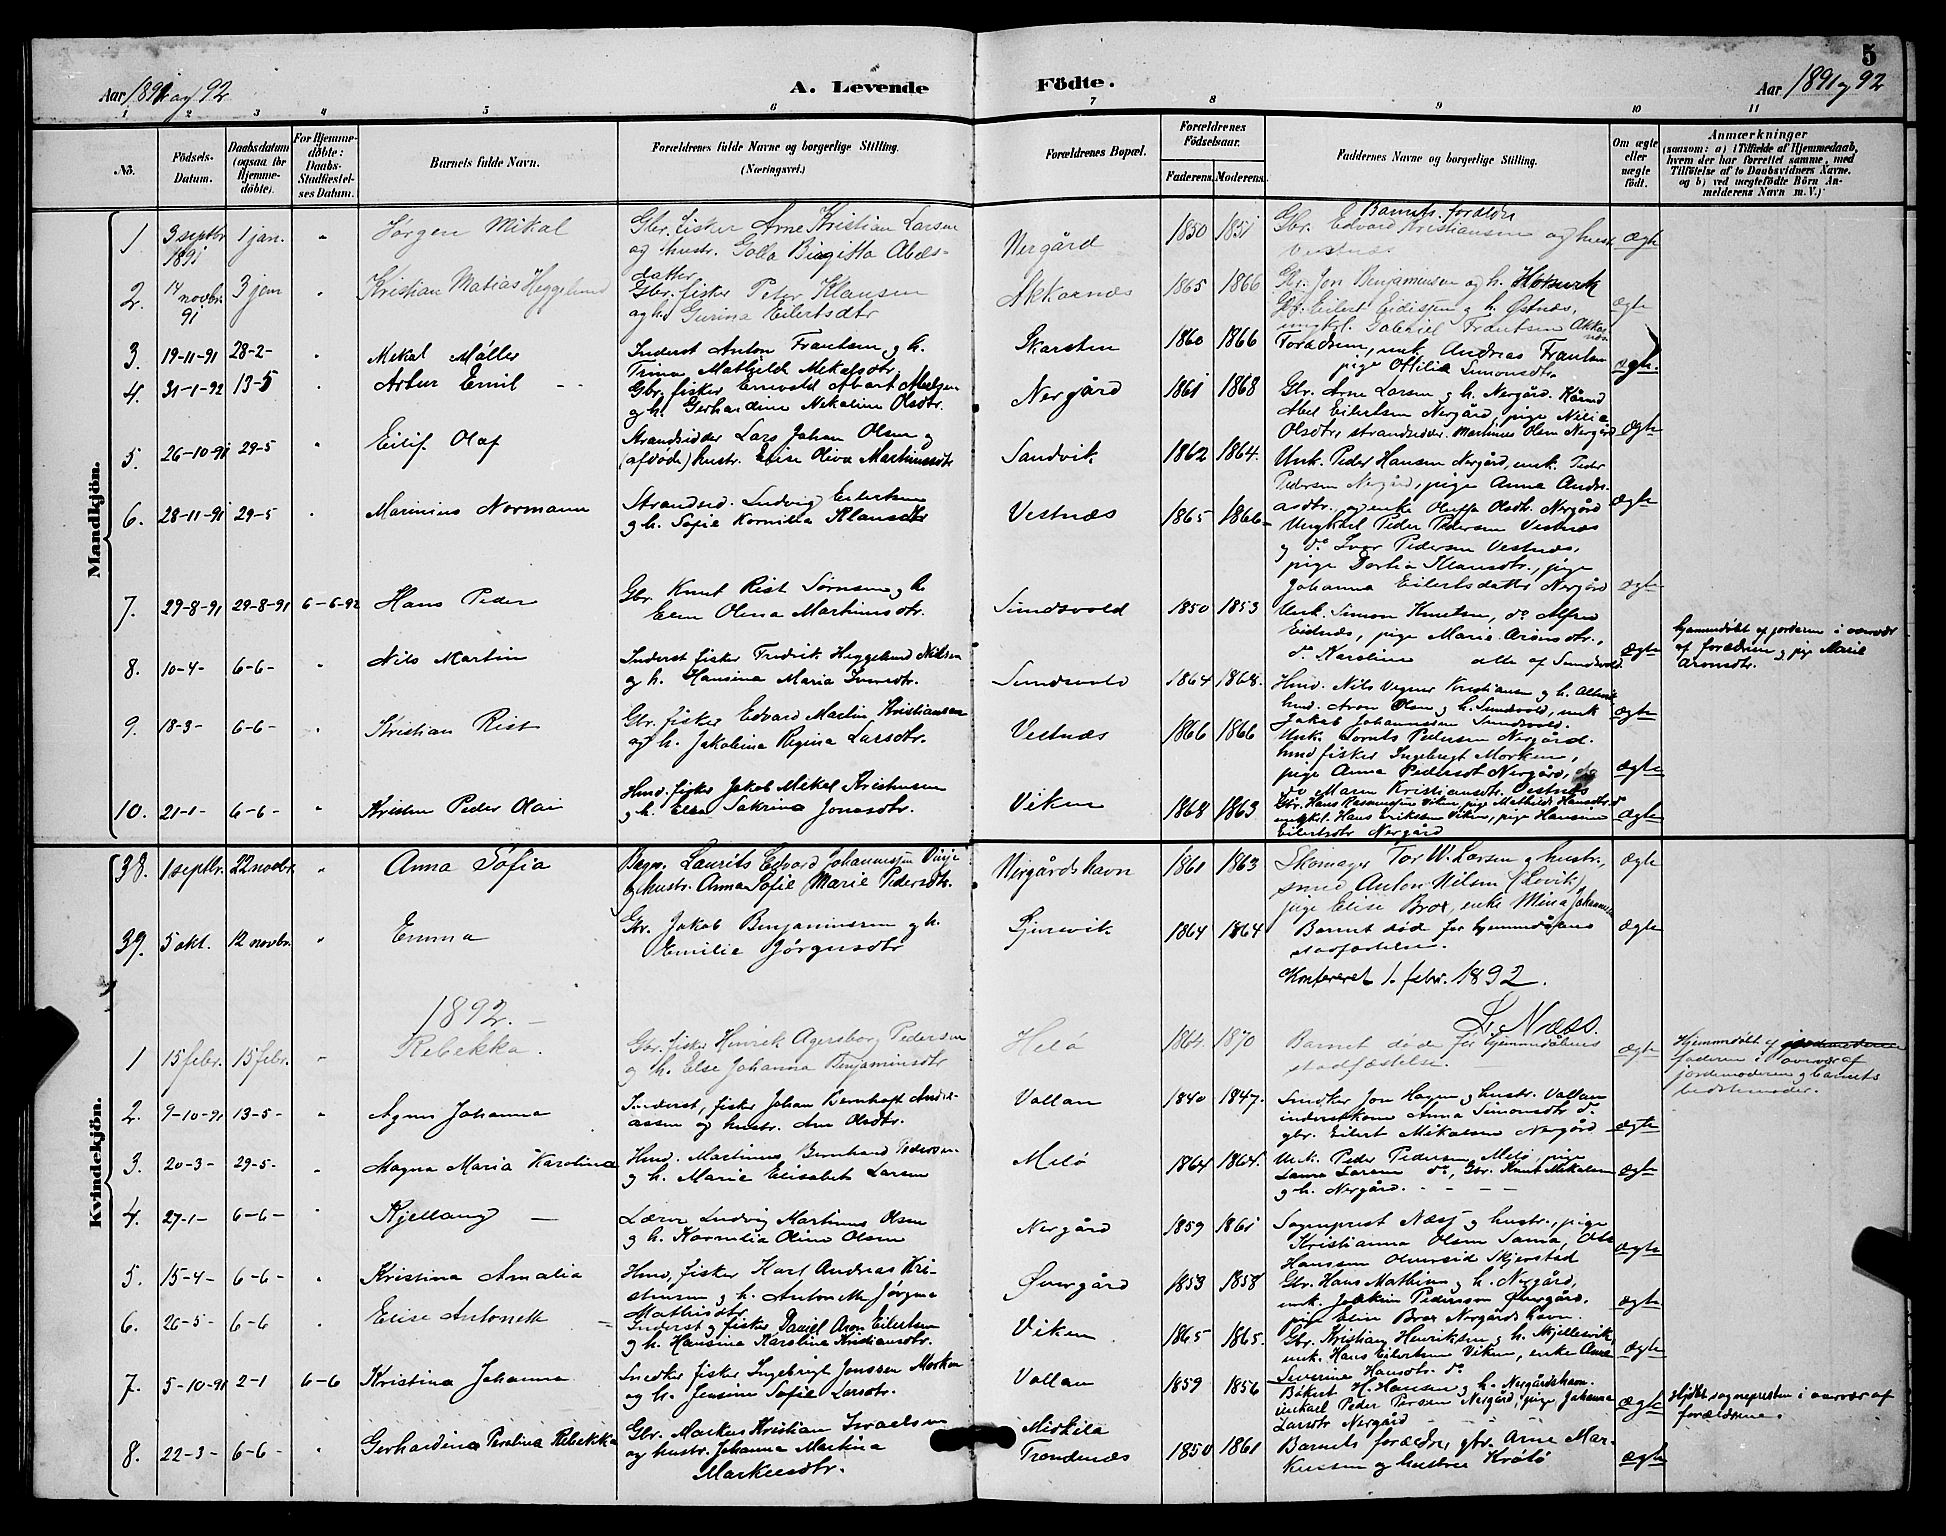 5
Aar 1891 og 92
A. Levende
Födte.
Aar 1891 og 92
1 2 3 4 5 6 7 8 9 10 11
No.
Födsels-Datum.
Daabsdatum (ogsaa for Hjemme-döbte).
For Hjemme-döbte: Daabs-Stadfæstel-ses Datum.
Barnets fulde Navn.
Forældrenes fulde Navne og borgerlige Stilling. (Næringsvei.)
Forældrenes Bopæl.
Forældrenes Födselsaar.
Faderens. Moderens.
Faddernes Navne og borgerlige Stilling.
Om ægte eller uægte födt.
Anmærkninger
(saasom: a) i Tilfælde af Hjemmedaab, hvem der har forrettet samme, med Tilföielse af to Daabsvidners Navne. og b) ved uægtefödte Börn An-melderens Navn m. V.)
Mandkjön.
1. 3 septbr. 1891 1 jan. " Jørgen Mikal Gbr. fisker Arne Kristian Larsen og hustr. Golla Birgitta Abels-datter Nergård 1850 1851 Barnets foreldre Gbr. Edvard Kristiansen og hustr Vestnæs ægte
2. 14 novbr. 91 3 jan " Kristian Matias Heggelund Gbr. fisker Peter Klausen og h. Gurina Eilertsdtr Akkarnæs 1865 1866 Gbr. Jon Benjaminsen og h. Gbr. Eilert og h. Østnæs, ungkl. Gabriel Frantsen Akkarnæs ægte
3. 19-11-91 28-2- " Mikal Møller Inderst Anton Frantsen og h. Trina Mathilde Mikalsdtr. Skarsten 1860 1866 Foreldrene, unk. Andreas Frantsen pige Ottilia Simonsdtr. ægte.
4. 31-1-92 13-5 " Artur Emil Gbr. fisker Enevold Abart Abelsen og h. Gerhardine Nikoline Olsdtr. Nergård 1861 1868 Gbr. Arne Larsen og h. Nergård. Abel Eilertsen Nergård, pige Nilia Olsdtr, strandsidder Martinus Olsen Nergård ægte
5. 26-10-91 29-5 " Eilif Olaf Strandsidder Lars Johan Olsen og (afdöde) hustr. Elise Oliva Martinusdtr Sandvik 1862 1864. Unk. Peder Hansen Nergård, unk. Peder Pedersen Nergård, pige Anna Andre-asdtr. og enke Oluffa Olsdtr. Nergård ægte
6. 28-11-91 29-5 " Marinius Normann Strandsid. Ludvig Eilertsen og h. Sofie Kornilia Klausdtr Vestnæs 1865 1866 Ungkarl Peder Pedersen Vestnæs og do Ivar Pedersen Vestnæs, pige Dortia Klausdtr., pige Johanna Eilertsdatter Nergård ægte
7. 29-8-91 29-8-91 6-6-92 Hans Peder Gbr. Knut Rist Sørensen og h. Elen Olena Martinusdtr. Sundsvold 1850 1853 Unk. Simon Knutsen, do Alfred Eidnæs, pige Marie Aronsdtr., do Karoline alle af Sundsvold. ægte hjemmedöbt af jordemoderen i overvær af foreldrene og pige Marie Aronsdtr.
8. 10-4- 6-6- " Nils Martin Inderst fisker Fredrik Heggelund Nilsen og h. Hansina Maria Iversdtr. Sundsvold 1864 1868. Hmd. Nils Vegner Kristiansen og h. hmd. Aron Olsen og h. Sundsvold, unk Jakob Johannessen Sundsvold. ægte
9. 18-3- 6-6- " Kristian Rist Gbr. fisker Edvard Martin Kristiansen og h. Jakobina Regina Larsdtr. Vestnæs 1866 1866 Unk. Lorents Pedersen Nergård. hmd. fisker Ingebrigt Morken, pige Anna Pedersdtr Nergård, do Maren Kristiansdtr. Vestnæs ægte
10. 21-1- 6-6- " Kristen Peder Olai Hmd. fisker Jakob Mikal Kristensen og h. Else Sakrina Jonasdtr. Viken 1868 1863 Gbr. Hans Rasmussen Viken, pige Mathilde Hansdtr. do ungkl. Hans Eriksen Viken, pige Hansine Eilertsdtr Nergård ægte
Kvindekjön.
38. 1 septbr. 22 novbr. " Anna Sofia Laurits Edvard Johannessen og hustr. Anna Sofie Marie Pedersdtr. Nergårdshavn 1861 1863 Skomager Tor W. Larsen og hustr., smed Anton Nilsen (Levik) pige Elise Brox, enke Mina Johannesen ægte
39. 5 okt. 12 novbr. " Emma Gbr. Jakob Benjaminsen og h. Emilie Jørgensdtr Gjersvik 1864 1864 Barnet döde før hjemmedåbens stadfæstelse. ægte
Konfereret 1. febr. 1892.
L. Næss.
1892.
1 15 febr. 15 febr. " Rebekka. Gbr. fisker Henrik Agersborg Pedersen og h. Else Johanna Benjaminsdtr Helö 1864 1870 Barnet döde før hjemmedåbens stadfæstelse. ægte Hjemmedöbt af faderen i overvær af jordemoderen og barnets bedstemoder.
2. 9-10-91 13-5- " Agnes Johanna Inderst, fisker Johan Bernhoft Andre-assen og hustr. Ane Olsdtr. Vollan 1840 1847. Snedker Jon Hagen og hustr. Vollan inderstkone Anna Simonsdtr do. gbr. Eilert Mikalsen Nergård ægte
3. 20-3- 29-5- " Magna Maria Karolina Hmd. Martinus Bernhard Pedersen og h. Marie Elisabet Larsen Melö 1864 1864. Unk. Peder Pedersen Melö, pige Laura Larsen do, Gbr. Knut Mikalsen og h. Nergård. ægte
4. 27-1- 6-6- " Kjellaug Lærer Ludvig Martinus Olsen og h. Kornelia Oline Olsen Nergård 1859 1861 Sogneprest Næss og hustr., pige Kristianna Olsen Sama, Hansen Skjerstad ægte
5. 15-4- 6-6- " Kristina Amalia Hmd. fisker Karl Andreas Kri-stensen og h. Antonette Jörgine Mathisdtr Øvergård 1853 1858 Gbr. Hans Mathisen og h. Nergård, unk. Joakim Pedersen Øvergård, pige Elise Brox Nergårdshavn. ægte
6. 26-5- 6-6 " Elise Antonette Inderst og fisker Daniel Aron Eilertsen og h. Hansina Karolina Kristiansdtr. Viken 1865 1865. Gbr. Kristian Henriksen og h. Skjellesvik, unk. Hans Eilertsen Viken, enke Ane Severine Hansdtr. do ægte
7. 5-10-91 2-1 6-6 Kristina Johanna Snedker fisker Ingebrigt Jonssen Morken og h. Jensine Sofie Larsdtr. Vollan 1859 1856 H. Hansen og h. Nergårdshavn. unkarl Peder Persen Nergård, pige Johanna Larsdtr Nergård ægte Hjdöbt sognepresten i overvær af foreldrene.
8. 22-3- 6-6- " Gerhardina Peralina Rebekka Gbr. Markus Kristian Israelsen og hustr. Johanna Martina Markusdtr. Miskila Trondenæs 1850 1861 Barnets foreldre, gbr. Arne Mar-kussen og hustru Krötö ægte